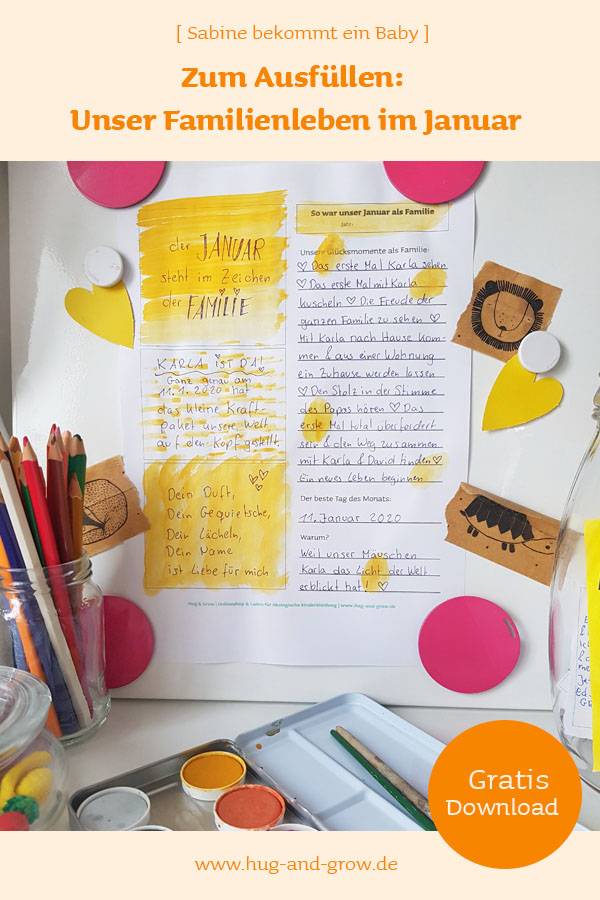 [ Sabine bekommt ein Baby ]
Zum Ausfüllen:
Unser Familienleben im Januar
der JANUAR
steht im Zeichen
der FAMILIE
KARLA IST DA!
Ganz genau am
11.1.2020 hat
das kleine Kraft-
paket unsere Welt
auf den Kopf gestellt.
Dein Duft,
Dein Gequietsche,
Dein Lächeln,
Dein Name
ist Liebe für mich
So war unser Januar als Familie
Jahr:
Unsere Glücksmomente als Familie:
♡ Das erste Mal Karla sehen
♡ Das erste Mal mit Karla
kuscheln ♡ Die Freude der
ganzen Familie zu sehen ♡
Mit Karla nach Hause kom-
men & aus einer Wohnung
ein Zuhause werden lassen
♡ Den Stolz in der Stimme
des Papas hören ♡ Das
erste Mal total überfordert
sein & den Weg zusammen
mit Karla & David finden ♡
Ein neues Leben beginnen
Der beste Tag des Monats:
11. Januar 2020
Warum?
Weil unser Mäuschen
Karla das Licht der Welt
erblickt hat! ♡
Hug & Grow | Onlineshop & Laden für ökologische Kinderkleidung | www.hug-and-grow.de
Gratis
Download
www.hug-and-grow.de